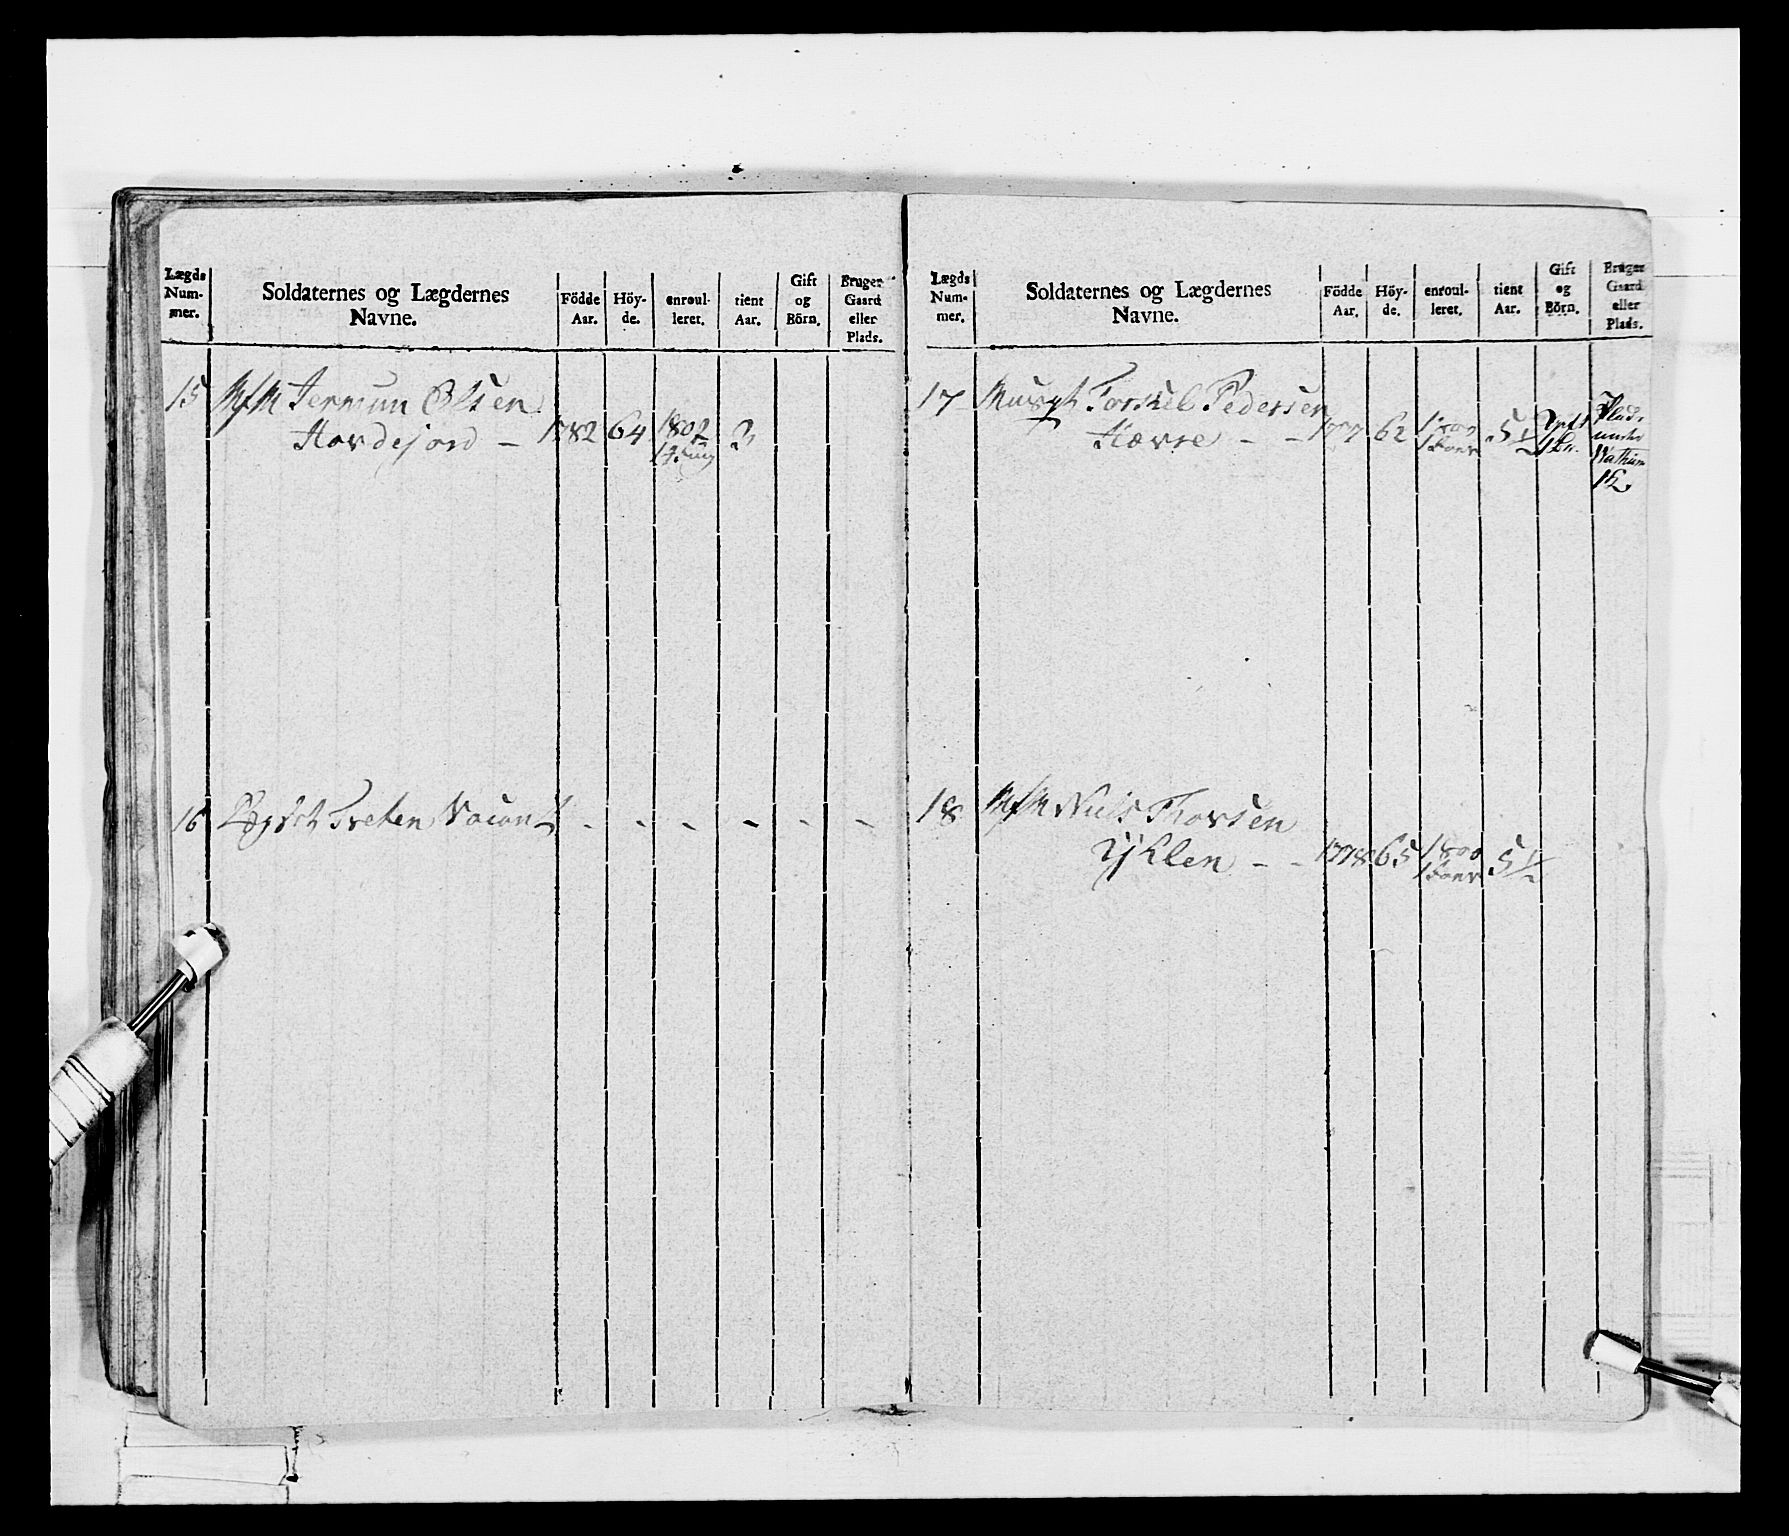 Lægds
Num-
mer.
Soldaternes og Lægdernes
Navne.
Födde
Aar.
Höy-
de.
enroul-
leret.
tient
Aar.
Gift
og
Börn.
Bruger
Gaard
eller
Plads.
15 Olsen
Hovdejord – 1782 64 1802 2
16 Vacant - - - - - -
Lægds
Num-
mer.
Soldaternes og Lægdernes
Navne.
Födde
Aar.
Höy-
de.
enroul-
leret.
tient
Aar.
Gift
og
Börn.
Bruger
Gaard
eller
Plads.
17 Torkel Pedersen
Hævre – – 1777 62 1800 5½ Gift
1 Bn.
Plads
under
18 Niels Thorsen
– – 1778 65 1800 5½